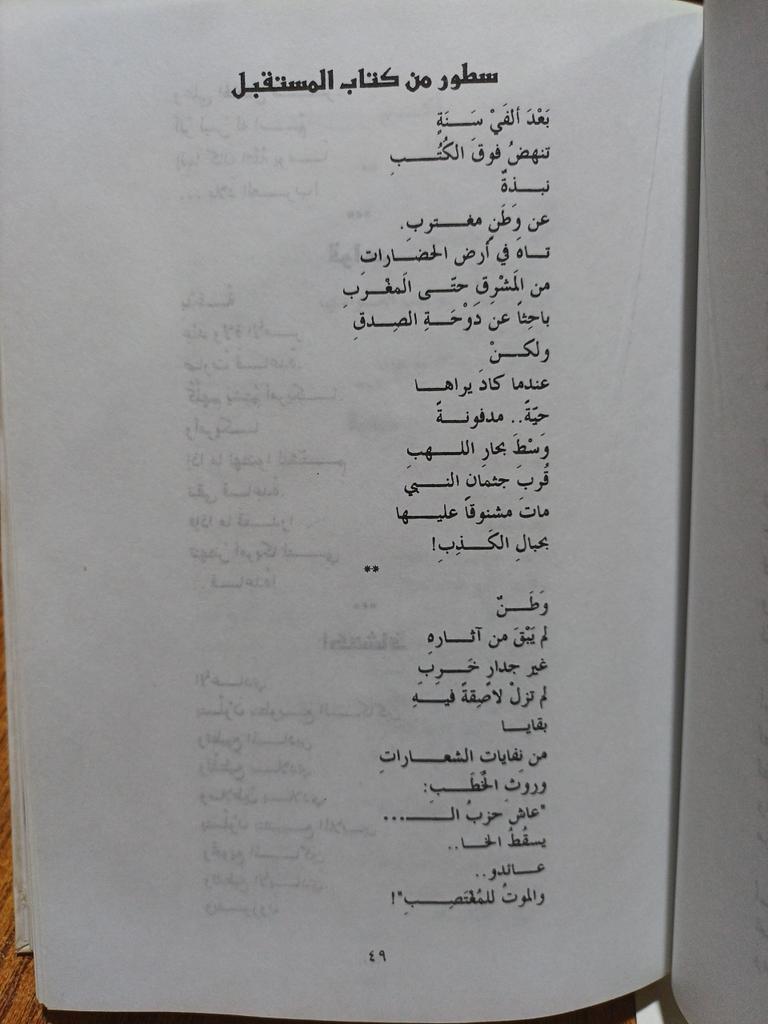 سطور من كتاب المستقبل
بَعْدَ ألْفَيْ سَــنَةٍ
تنهضُ فوقَ الكُتُــبِ
نبــذةٌ
عن وَطَنٍ مغــتربِ.
تــاهَ في أرضِ الحضــارات
من المَشْرِقِ حتّــى المَغْــرَبِ
باحِثاً عن دَوْحَــةِ الصِــدقِ
ولكــنْ
عندما كادَ يراهــا
حيّةً.. مدفونــةً
وَسْطَ بحارِ اللــهبِ
قُربَ جثمانِ النــبي
ماتَ مشنوقاً عليــها
بحبالِ الكَــذِبِ!
**
وَطَــنٌ
لم يَبْقَ من آثــارهِ
غير جدارٍ خَــرِبِ
لم تزلْ لاصِقةً فيــهِ
بقايــا
من نِفايات الشعــاراتِ
وروثِ الخُطَــبِ:
"عاشَ حزبُ الــ...
يسقُطُ الخــا..
عــائدو..
والموتُ للمُغْتَصِــبِ"!
٤٩